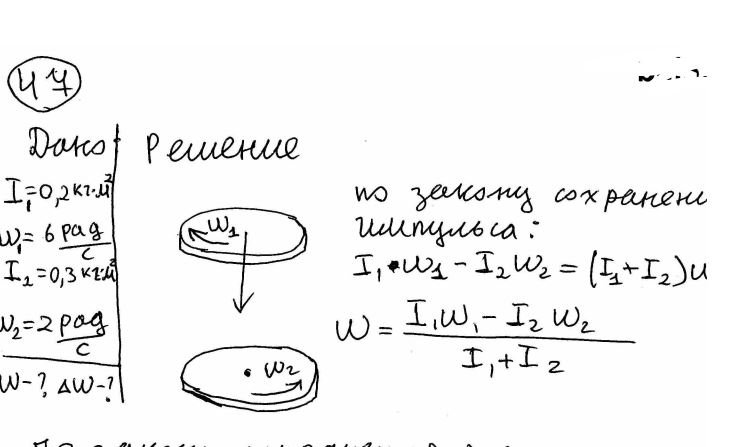 47
Дано
Решение
I₁=0,2 кг·м²
ω₁= 6 рад/с
I₂=0,3 кг·м²
ω₂=2 рад/с
ω-? Δω-?
ω₁
ω₂
по закону сохранени
импульса:
I₁·ω₁ - I₂ω₂ = (I₁+I₂)ω
ω = (I₁ω₁ - I₂ω₂)/(I₁+I₂)